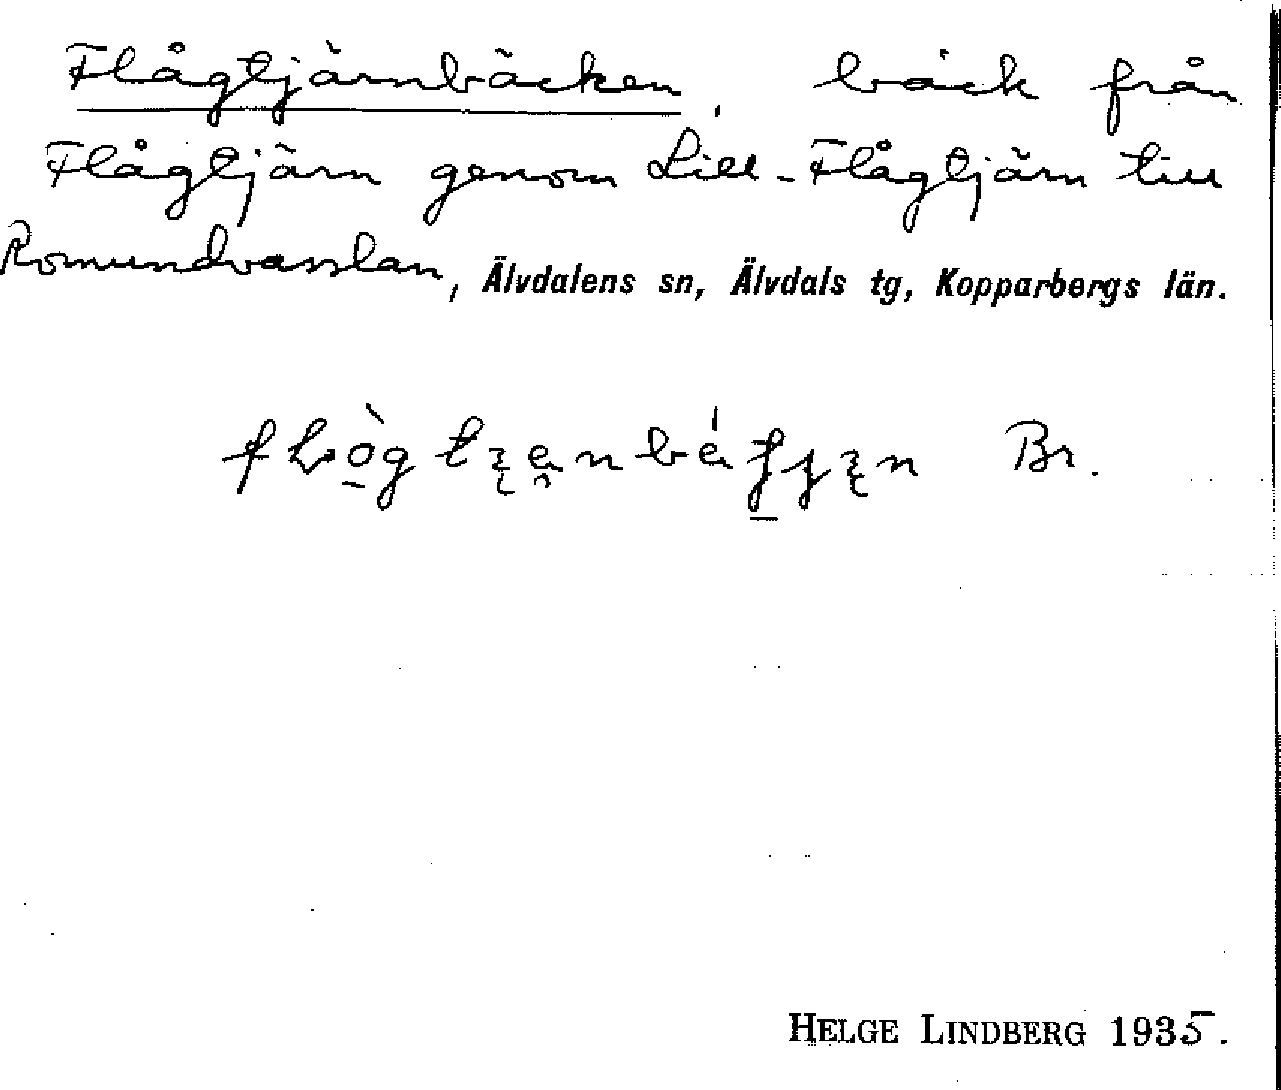 Flågtjärnbäcken, bäck från
Flågtjärn genom Lill-Flågtjärn till
Romundvasslan, Älvdalens sn, Älvdals tg, Kopparbergs län.
Br.
HELGE LINDBERG 1935.